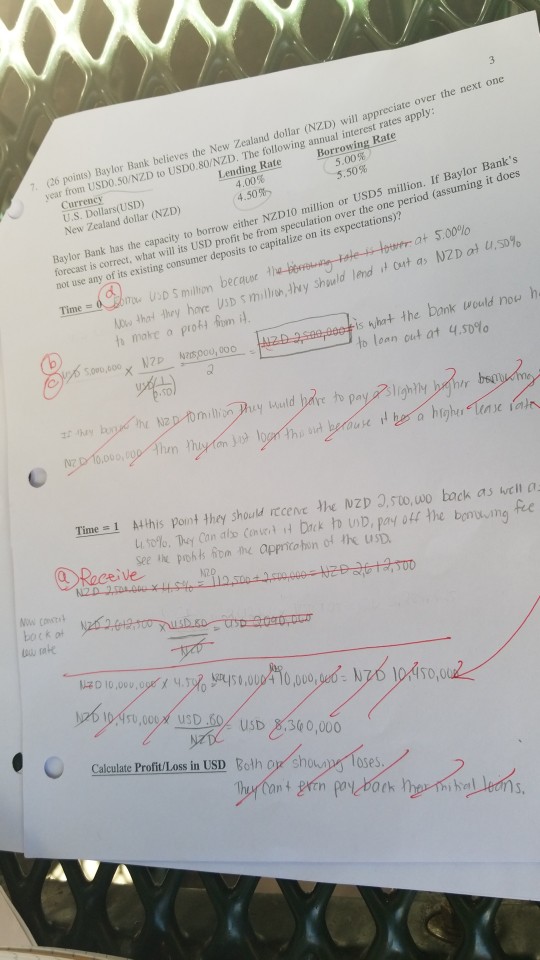 3
7. (26 points) Baylor Bank believes the New Zealand dollar (NZD) will appreciate over the next one
year from USD0.50/NZD to USD0.80/NZD. The following annual interest rates apply:
Currency Lending Rate Borrowing Rate
U.S. Dollars(USD) 4.00% 5.00%
New Zealand dollar (NZD) 4.50% 5.50%
Baylor Bank has the capacity to borrow either NZD10 million or USD5 million. If Baylor Bank's
forecast is correct, what will its USD profit be from speculation over the one period (assuming it does
not use any of its existing consumer deposits to capitalize on its expectations)?
Time = 0 Borrow USD 5 million because the borrowing rate is lower at 5.00%
Now that they have USD 5 million, they should lend it out as NZD at 4.50%
to make a profit from it.
(b)
(c) USD 5,000,000 × NZD = NZD 5,000,000 = NZD 2,500,000 is what the bank would now h
2 to loan out at 4.50%
If they borrow the NZD 10 million they would have to pay a slightly higher
NZD 10,000,000, then they can just loan this out because it has a higher lease rate
Time = 1 At this point they should receive the NZD 2,500,000 back as well as
4.50%. They can also convert it back to USD, pay off the borrowing fee
see the profits from the of the USD.
(a) Receive
NZD 2,500,000 × 4.5% = NZD 112,500 + 2,500,000 = NZD 2,612,500
Now convert
back at
new rate
NZD 2,612,500 × USD.80 = USD 2,090,000
NZD
NZD 10,000,000 × 4.5% = NZD 450,000 + NZD 10,000,000 = NZD 10,450,000
NZD 10,450,000 × USD .80 = USD 8,360,000
NZD
Calculate Profit/Loss in USD Both are showing loses.
They can't even pay back their initial loans.